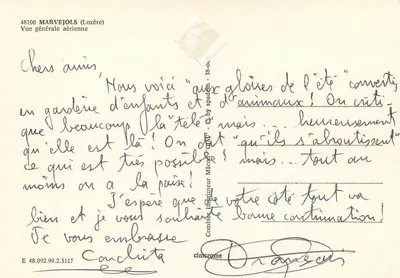 48100 MARVEJOLS (Lozère)
Vue générale aérienne
Chers amis,
Nous voici "aux gloires de l'été" convertis
en garderie d'enfants et d'animaux! On criti-
que beaucoup la "télé" mais... heureusement
qu'elle est là! On dit "qu'ils s'abrutissent"
ce qui est très possible! mais... tout au
moins on a la paix!
J'espère que de votre côté tout va
bien et je vous souhaite bonne continuation!
Je vous embrasse
Conchita
E 48.092.99.2.3117
cim
Combier Imprimeur Mâcon